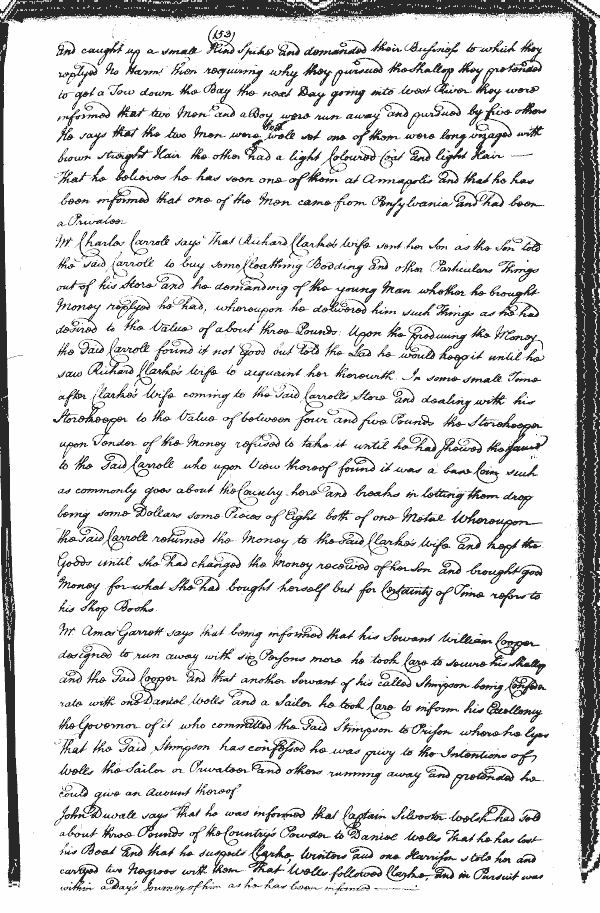 (153)
and caught up a small Hand Spike and demanded their Business to which they
replyed No Harm then requiring why they pursued the Shallop they pretended
to get a Tow down the Bay the next Day going into West River they were
informed that two Men and a Boy were run away and pursued by five others
He says that the two Men were well set one of them were long visaged with
brown straight Hair the other had a light Coloured Coat and light Hair —
That he believes he has seen one of them at Annapolis and that he has
been informed that one of the Men came from Pensylvania and had been
a Privateer
Mr Charles Carroll says That Richard Clarke's Wife sent her Son as the Son told
the said Carroll to buy some Cloathing Bedding and other Particulars Things
out of his Store and he demanding of the young Man whether he brought
Money replyed he had, whereupon he delivered him such Things as he had
desired to the Value of about three Pounds: Upon the produceing the Money
the Said Carroll found it not Good but Told the Lad he would keep it until he
saw Richard Clarke's Wife to acquaint her therewith In some small Time
after Clarke's Wife coming to the Said Carrolls Store and dealing with his
Storekeeper to the Value of between four and five Pounds the Storekeeper
upon Tender of the Money refused to take it until he had Shewed the same
to the Said Carroll who upon View thereof found it was a base Coin such
as commonly goes about the Country here and breaks in letting them drop
being some Dollars some Pieces of Eight both of one Metal Whereupon
the Said Carroll returned the Money to the Said Clarke's Wife and kept the
Goods until She had changed the Money received of her Son and brought good
Money for what She had bought herself but for Certainty of Time refers to
his Shop Books.
Mr Amos Garrett says that being informed that his Servant William Cooper
designed to run away with six Persons more he took Care to secure his Shallop
and the Said Cooper and that another Servant of his called Stimpson being Confeder
rate with one Daniel Wells and a Sailor he took Care to inform his Excellency
the Governor of it who committed the Said Stimpson to Prison where he lyes
That the Said Stimpson has confessed he was privy to the Intentions of
Wells the Sailor or Privateer and others running away and pretended he
could give an Account thereof
John Duvall says that he was informed that Captain Silvester Welch had sold
about three Pounds of the Country's Powder to Daniel Wells That he has lost
his Boat And that he suspects Clarke, Winters and one Harrison stole her and
carryed two Negroes with them That Wells followed Clarke, and in Pursuit was
within a Day's Journey of him as he has been informed —